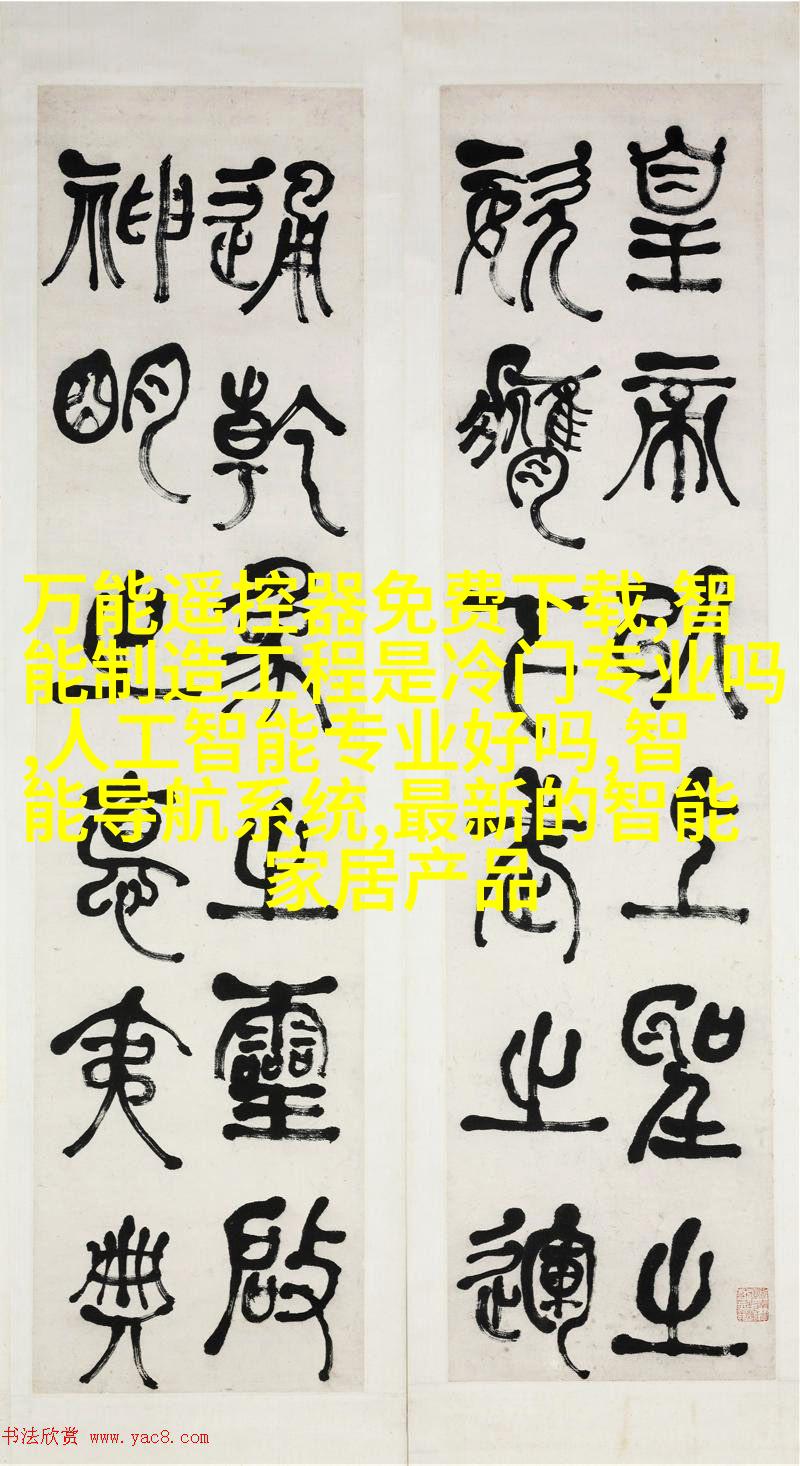 皇帝以上聖之
姿膺下武之運
通乾象之靈啟
神明之悳夷典
万能遥控器免费下载,智
能制造工程是冷门专业吗
,人工智能专业好吗,智
能导航系统,最新的智能
家居产品
书法欣赏 www.yac8.com